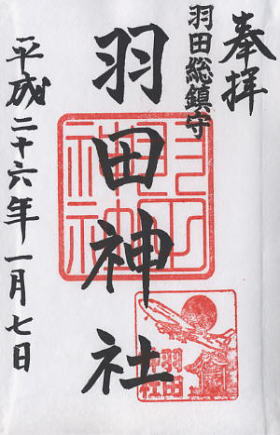 奉拝
羽田総鎮守
羽田神社
平成二十六年一月七日
羽田神社
羽田神社